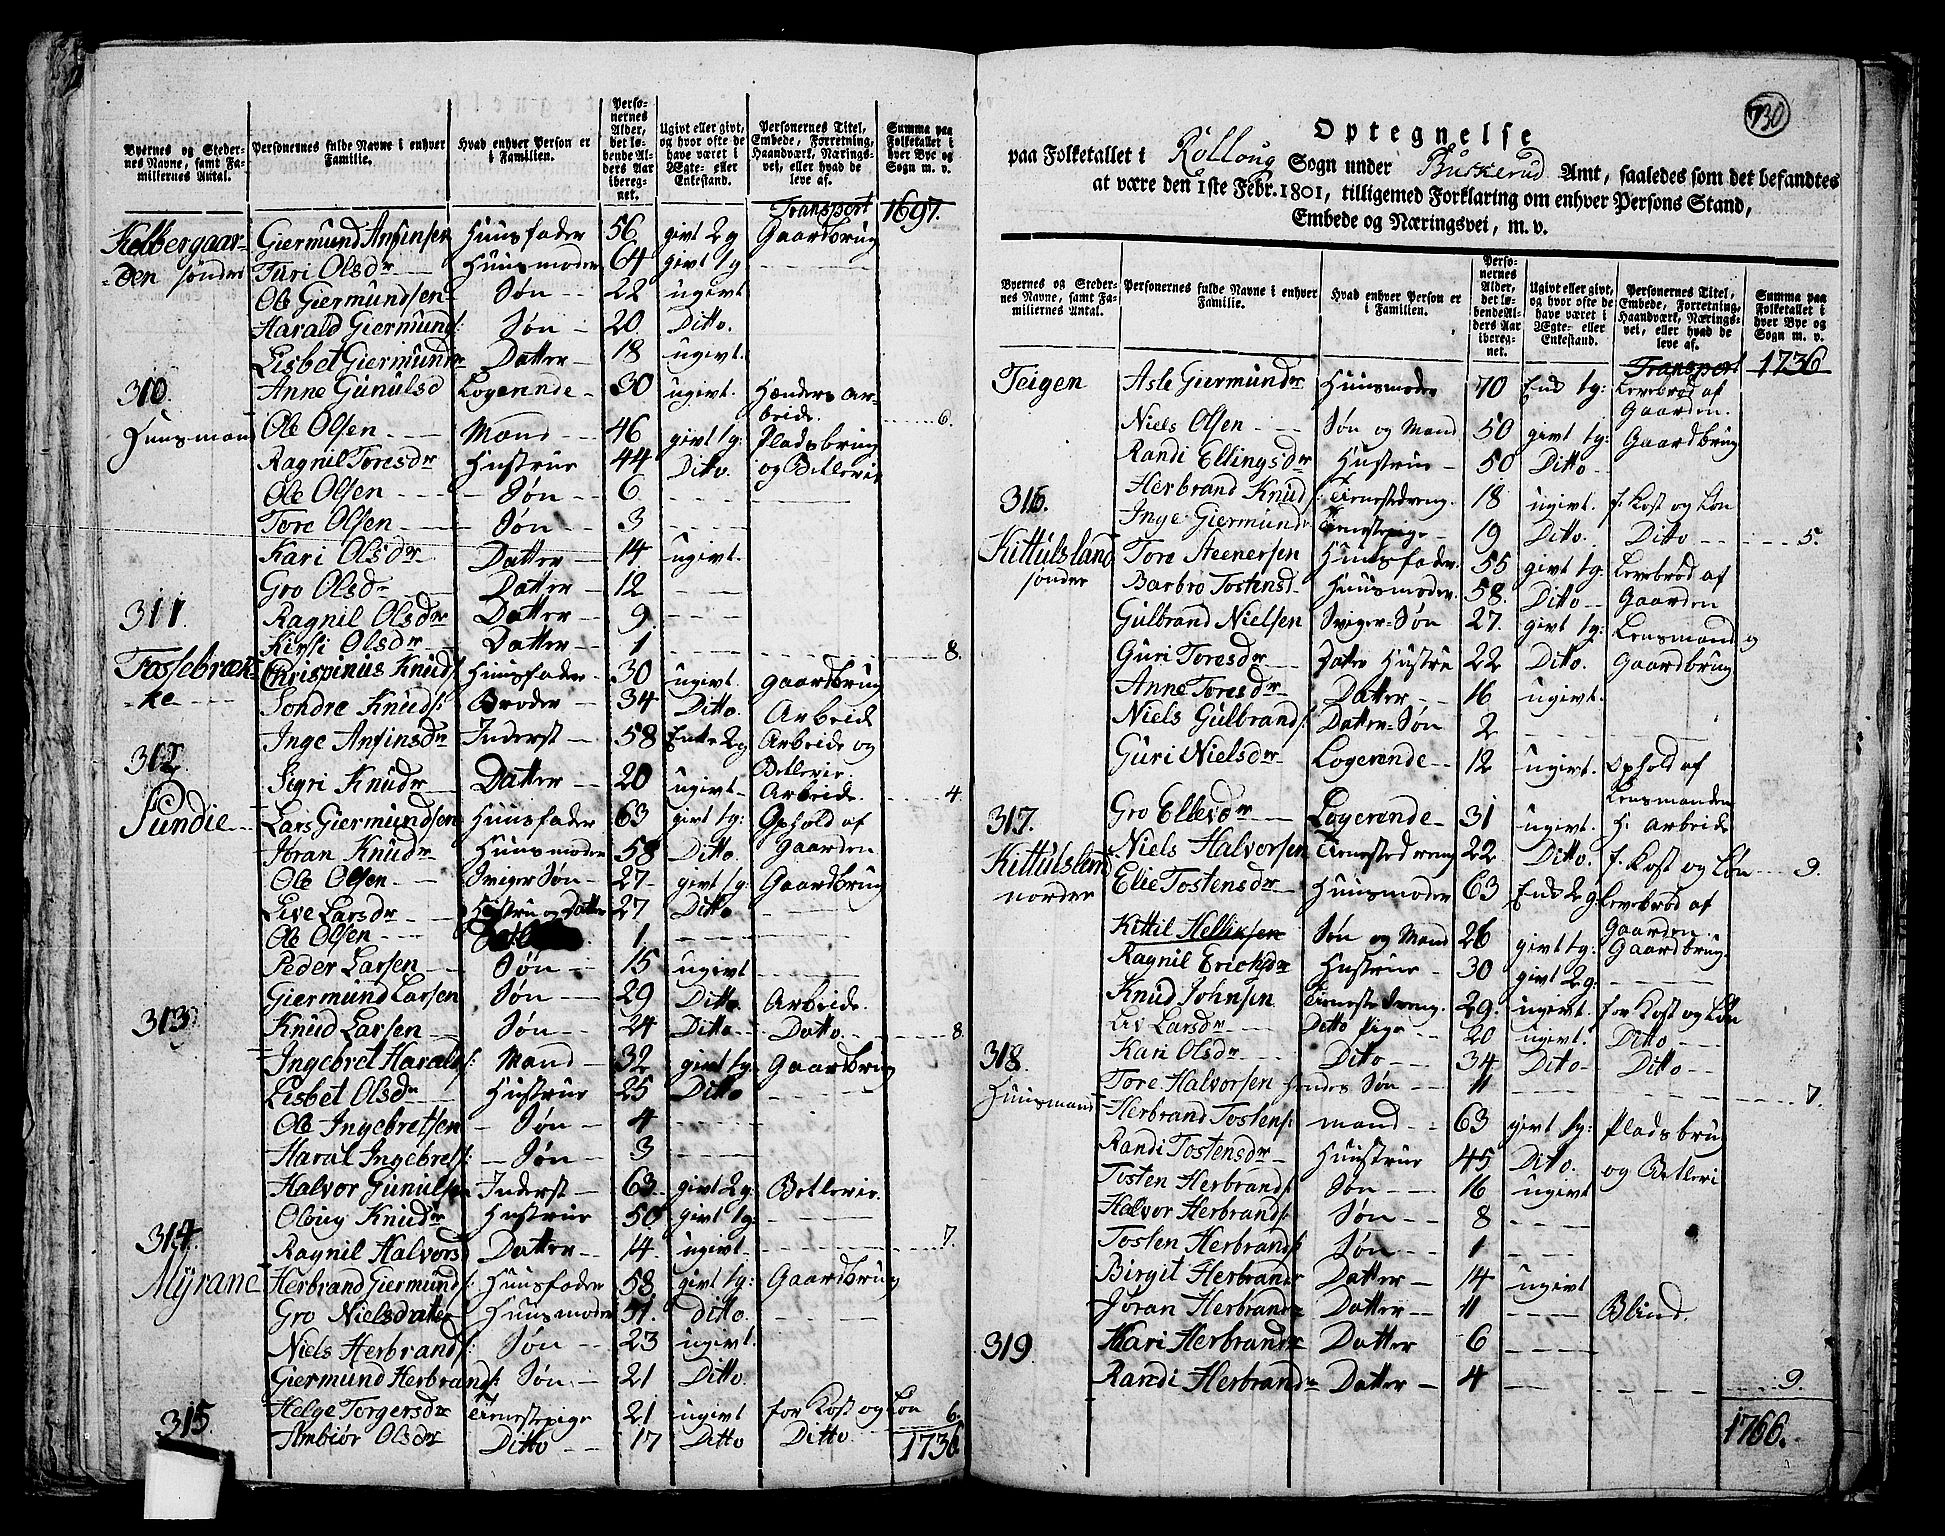 Byernes og Steder-
nes Navne, samt Fa-
miliernes Antal.
Personernes fulde Navne i enhver
Familie.
Hvad enhver Person er
i Familien.
Perso-
nernes
Alder,
det lø-
bende Al-
ders Aar
ibereg-
net.
Ugivt eller givt,
og hvor ofte de
have været i
Ægte- eller
Enkestand.
Personernes Titel,
Embede, Forretning,
Haandværk, Nærings-
vei, eller hvad de
leve af.
Summa paa
Folketallet i
hver Bye og
Sogn m. v.
Transport 1697.
Kolbergaar- Giermund Anfinsen Huusfader 56 givt 2g Gaardbrug
den søndre Turi Olsdr Huusmoder 64 givt 1g
Ole Giermundsen Søn 22 ugivt
Harald Giermunds: Søn 20 Ditto.
Lisbet Giermundr Datter 18 ugivt.
310. Anne Gunulsd Logerende 30 ugivt. Hænders Ar-
beide. 6.
Huusmand Ole Olsen Mand 46 givt 1g: Pladsbrug
Ragnil Toresdr Hustrue 44 Ditto. og Betlerie
Ole Olsen Søn 6
Tore Olsen Søn 3
Kari Olsdr Datter 14 ugivt.
Gro Olsdr Datter 12
311. Ragnil Olsdr Datter 9
Kirsi Olsdr Datter 1 8.
Tassebræk- Chrispinus Knuds: Huusfader 30 ugivt. Gaardbrug
ke Sondre Knuds: Broder 34 Ditto. Arbeide
Inge Anfinsdr Inderst 58 Enke 2g Arbeide og
312. Betlerie.
Sigri Knudr Datter 20 ugivt Arbeide. 4
Pundie Lars Giermundsen Huusfader 63 givt 1g: Ophold af
Jøran Knudr Huusmoder 58 Ditto. Gaarden
Ole Olsen Sviger Søn 27 givt 1g: Gaardbrug
Live Larsdr Hustru og Datter 27 Ditto
Ole Olsen 1
Peder Larsen Søn 15 ugivt
Giermund Larsen Søn 29 Ditto Arbeide.
313. Knud Larsen Søn 24 Ditto Datto. 8.
Ingebret Haralds: Mand 32 givt 1g: Gaardbrug
Lisbet Olsdr Hustrue 25 Ditto
Ole Ingebretsen Søn 4
Haral Ingebrets: Søn 3
Halvor Gunulsen Inderst 63 givt 2g: Betlerie.
Oloug Knudr Hustrue 50 givt 1g:
314. Ragnil Halvorsd Datter 14 ugivt 7.
Myrane Herbrand Giermunds: Huusfader 58 givt 1g: Gaardbrug
Gro Nielsdatter Huusmoder 51. Ditto.
Niels Herbrands: Søn 23 ugivt.
Giermund Herbrands: Søn 21 Ditto
Helge Torgersdr Tienestepige 21 ugivt for Kost og Løn 6.
315. Ambiør Olsdr Ditto 17 Ditto Ditto 1736
730
Optegnelse
paa Folketallet i Rolloug Sogn under Buskerud Amt, saaledes som det befandtes
at være den 1ste Febr. 1801, tilligemed Forklaring om enhver Persons Stand,
Embede og Næringsvei, m. v.
Byernes og Steder-
nes Navne, samt Fa-
miliernes Antal.
Personernes fulde Navne i enhver
Familie.
Hvad enhver Person er
i Familien.
Perso-
nernes
Alder,
det lø-
bende Al-
ders Aar
ibereg-
net.
Ugivt eller givt,
og hvor ofte de
have været i
Ægte- eller
Enkestand.
Personernes Titel,
Embede, Forretning,
Haandværk, Nærings-
vei, eller hvad de
leve af.
Summa paa
Folketallet i
hver Bye og
Sogn m. v.
Transport 1736
Teigen Asle Giermundr Huusmoder 70 Enk 1g: Levebrød af
Gaarden.
Niels Olsen Søn og Mand 50 givt 1g: Gaardbrug
Randi Ellingsdr Hustrue 50 Ditto
316. Herbrand Knuds: Tienestedreng 18 ugivt. f. Kost og Løn
Inge Giermundr Tienestepige 19 Ditto. Ditto 5.
Kittulsland Tore Steenersen Huusfader. 55 givt 1g: Levebrød af
søndre Barbro Tostensd Huusmoder. 58. Ditto Gaarden
Gulbrand Nielsen Sviger-Søn 27. givt 1g: Lensmand og
Guri Toresdr Datter Hustru 22 Ditto. Gaardbrug
Anne Toresdr Datter 16 ugivt.
Niels Gulbrands: Datter-Søn 2
Guri Nielsdr Logerende 12 ugivt. Ophold af
Lensmanden
317. Gro Ellevdr Logerende 31 ugivt. H. Arbeide
Niels Halvorsen Tienestedreng 22. Ditto. f. Kost og Løn 9.
Kittulsland Elie Tostensdr Huusmoder 63 Enk 2g Levebrød af
nordre Gaarden.
Kittil Hellixsen Søn og Mand 26 givt 1g: Gaardbrug
Ragnil Erichsdr Hustrue 30 givt 2g:
Knud Johnsen Tienestedreng. 29. ugivt. for Kost og Løn
Liv Larsdr Ditto Pige 20 ugivt. Ditto
318. Kari Olsdr Ditto 34 Ditto Ditto
Tore Halvorsen Hendes Søn 11 7.
Huusmand Herbrand Tostens: mand 63 givt 1g: Pladsbrug
Randi Tostensdr Huustrue 45 Ditto. og Betleri
Tosten Herbrands: Søn 16 ugivt
Halvor Herbrands: Søn 8
Tosten Herbrands: Søn 1
Birgit Herbrandr Datter 14 ugivt
Jøran Herbrandr Datter 11 Blind.
319. Kari Herbrandr Datter 6
Randi Herbrandr Datter 4 9.
1766.